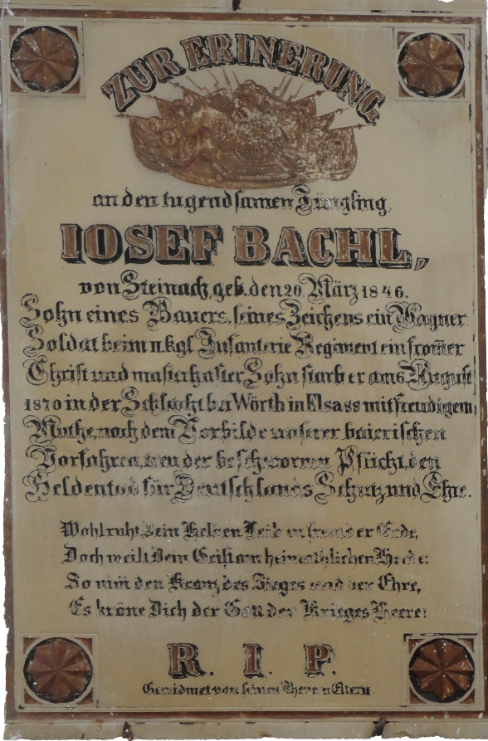 ZUR ERINERUNG
an den tugendsamen Jüngling,
IOSEF BACHL,
von Steinach, geb. den 20. März 1846.
Sohn eines Bauers, seines Zeichens ein Wagner
Soldat beim 11 kgl. Infanterie Regiment ein from̅er
Christ und musterhafter Sohn starb er am 6 August
1870 in der Schlacht bei Wörth in Elsass mit freudigem
Muthe, nach dem Vorbilde unserer baierischen
Vorfahren, treu der beschwornen Pflicht, den
Heldentod für Deutschlands Schutz und Ehre.
Wohl ruht Dein Helden Leib in fremder Erde,
Doch weilt Dein Geist am heimathlichen Herde:
So nim̅ den Kranz des Sieges und der Ehre,
Es kröne Dich der Gott der Krieges Heere!
R. I. P.
Gewidmet von seinen Eltern